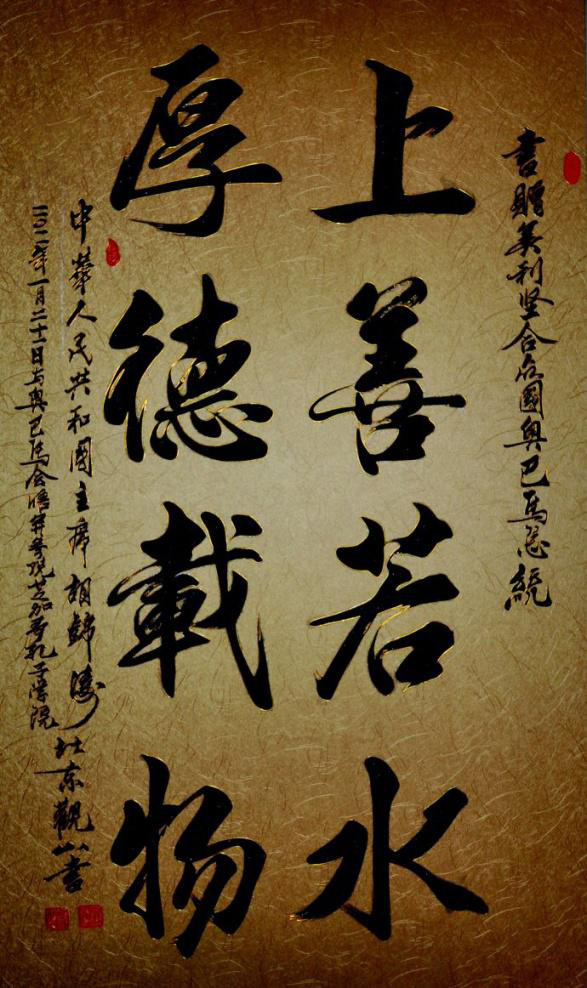 書贈美利坚合众國奥巴馬总統
上善若水
厚德載物
中華人民共和國主席胡錦濤
二〇一一年一月二十一日与奥巴馬会晤并参观芝加哥孔子學院
北京觀山書